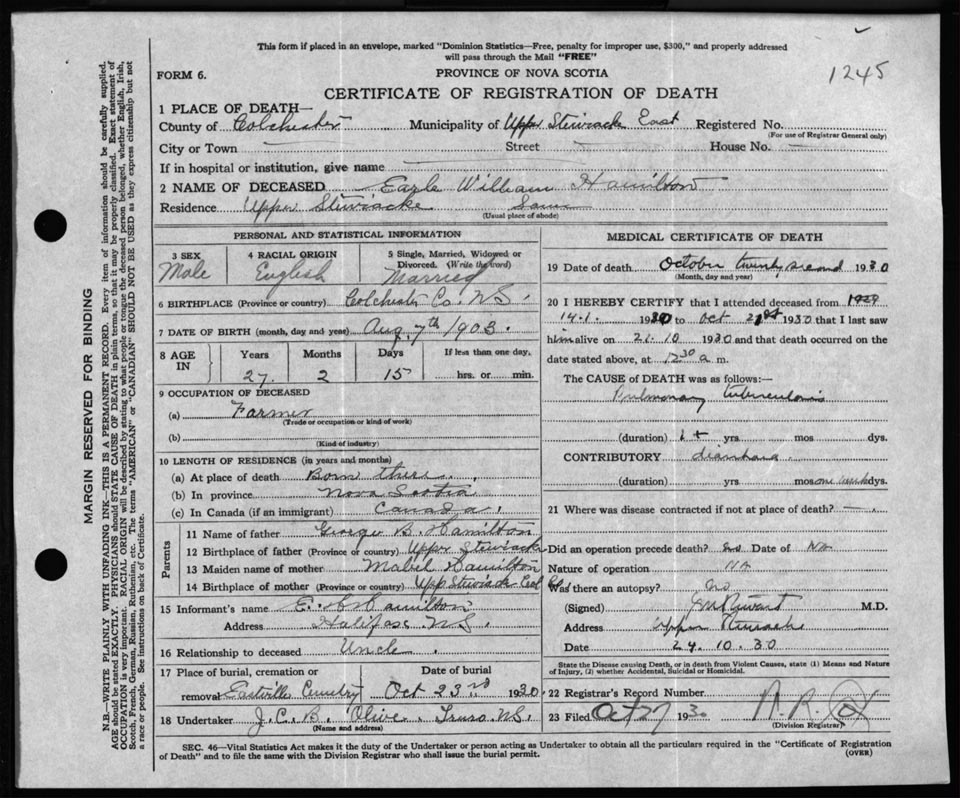 This form if placed in an envelope, marked "Dominion Statistics—Free, penalty for improper use, $300," and properly addressed
will pass through the Mail "FREE"
1245
FORM 6.
PROVINCE OF NOVA SCOTIA
CERTIFICATE OF REGISTRATION OF DEATH
1 PLACE OF DEATH—
County of Colchester Municipality of Upper Stewiacke East Registered No.
(For use of Registrar General only)
City or Town Street House No.
If in hospital or institution, give name
2 NAME OF DECEASED Earle William Hamilton
Residence Upper Stewiacke Same
(Usual place of abode)
PERSONAL AND STATISTICAL INFORMATION
3 SEX Male
4 RACIAL ORIGIN English
5 Single, Married, Widowed or Divorced. (Write the word) Married
6 BIRTHPLACE (Province or country) Colchester Co. N.S.
7 DATE OF BIRTH (month, day and year) Aug. 7th 1903.
8 AGE IN Years Months Days If less than one day,
27. 2 15 hrs. or min.
9 OCCUPATION OF DECEASED
(a) Farmer
(Trade or occupation or kind of work)
(b)
(Kind of industry)
10 LENGTH OF RESIDENCE (in years and months)
(a) At place of death Born there.
(b) In province Nova Scotia
(c) In Canada (if an immigrant) Canada.
Parents
11 Name of father George B. Hamilton
12 Birthplace of father (Province or country) Upper Stewiacke
13 Maiden name of mother Mabel Hamilton
14 Birthplace of mother (Province or country) Upp Stewiacke Col Co
15 Informant's name E. Hamilton
Address Halifax N.S.
16 Relationship to deceased Uncle.
17 Place of burial, cremation or removal Eastville Cemetry Date of burial Oct 23rd 1930.
18 Undertaker J. C. B. Olive. Truro N.S.
(Name and address)
MEDICAL CERTIFICATE OF DEATH
19 Date of death October twenty second 1930
(Month, day and year)
20 I HEREBY CERTIFY that I attended deceased from 1929
14.1. 1930 to Oct 21st 1930 that I last saw
him alive on 21.10 1930 and that death occurred on the
date stated above, at 12 30 a m.
The CAUSE OF DEATH was as follows:—
Pulmonary tuberculosis
(duration) 1 + yrs. mos dys.
CONTRIBUTORY diarrhoea
(duration) yrs. mos one week dys.
21 Where was disease contracted if not at place of death? —
Did an operation precede death? no Date of NA
Nature of operation NA
Was there an autopsy? no
(Signed) M.D.
Address Upper Stewiacke
Date 24.10.30
State the Disease causing Death, or in death from Violent Causes, state (1) Means and Nature
of Injury, (2) whether Accidental, Suicidal or Homicidal.
22 Registrar's Record Number
23 Filed Oct 27 1930
(Division Registrar)
SEC. 46—Vital Statistics Act makes it the duty of the Undertaker or person acting as Undertaker to obtain all the particulars required in the "Certificate of Registration
of Death" and to file the same with the Division Registrar who shall issue the burial permit.
(OVER)
MARGIN RESERVED FOR BINDING
N.B.—WRITE PLAINLY WITH UNFADING INK—THIS IS A PERMANENT RECORD. Every item of information should be carefully supplied.
AGE should be stated EXACTLY. PHYSICIANS should STATE CAUSE OF DEATH in plain terms, so that it may be properly classified. Exact statement of
OCCUPATION is very important. RACIAL ORIGIN will be described by stating to what people or tongue the deceased person belonged, whether English, Irish,
Scotch, French, German, Russian, Ruthenian, etc. The terms "AMERICAN" or "CANADIAN" SHOULD NOT BE USED as they express citizenship but not
a race or people. See instructions on back of Certificate.